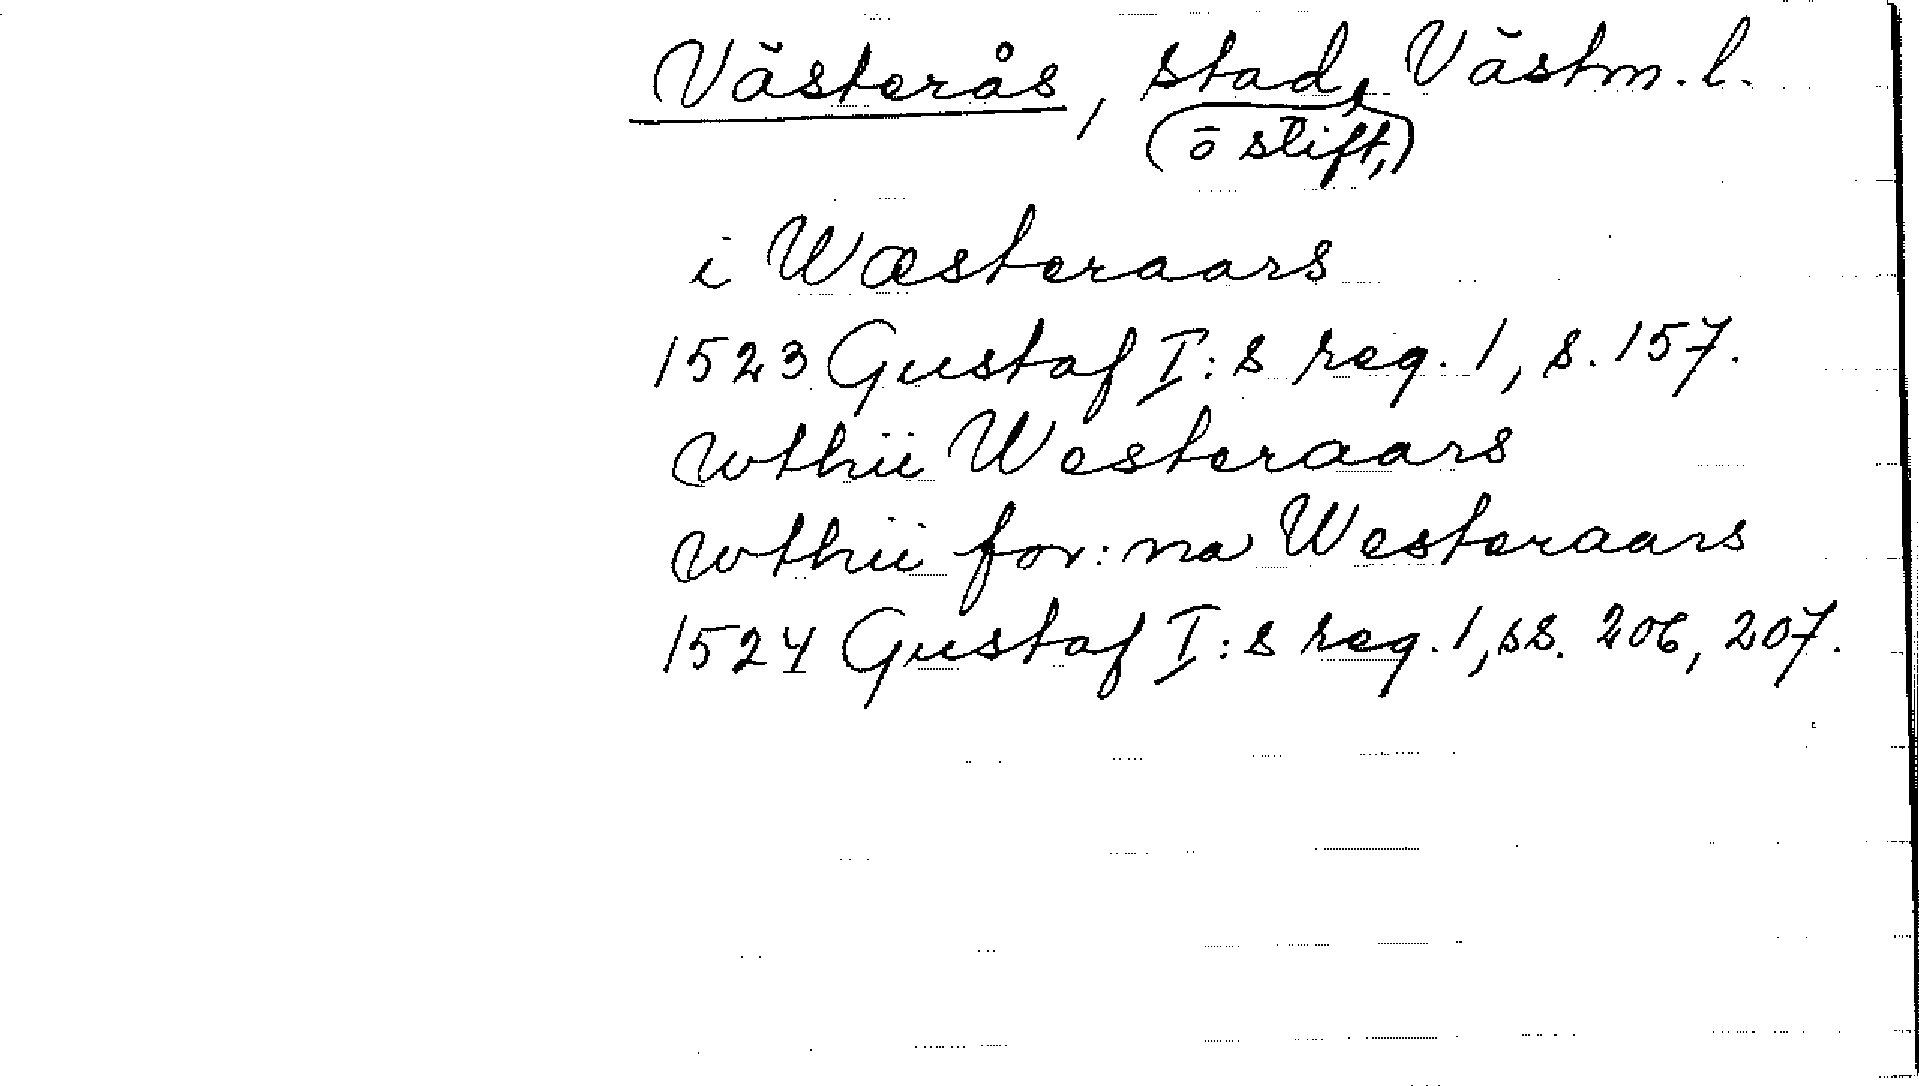 Västerås, stad, Västm. l.
(o stift,)
i Wæsteraars
1523 Gustaf I:s reg. 1, s. 157.
wthii Westeraars
wthii for:na Westeraars
1524 Gustaf I:s reg. 1, ss. 206, 207.